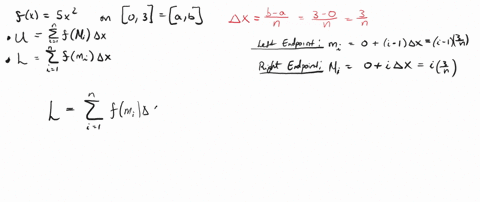 f(x) = 5x² on [0, 3] = [a, b]
Δx = b-a/n = 3-0/n = 3/n
• U = Σ_{i=1}^{n} f(M_i) Δx
• L = Σ_{i=1}^{n} f(m_i) Δx
Left Endpoint: m_i = 0 + (i-1) Δx = (i-1)(3/n)
Right Endpoint: M_i = 0 + i Δx = i(3/n)
L = Σ_{i=1}^{n} f(m_i) Δ